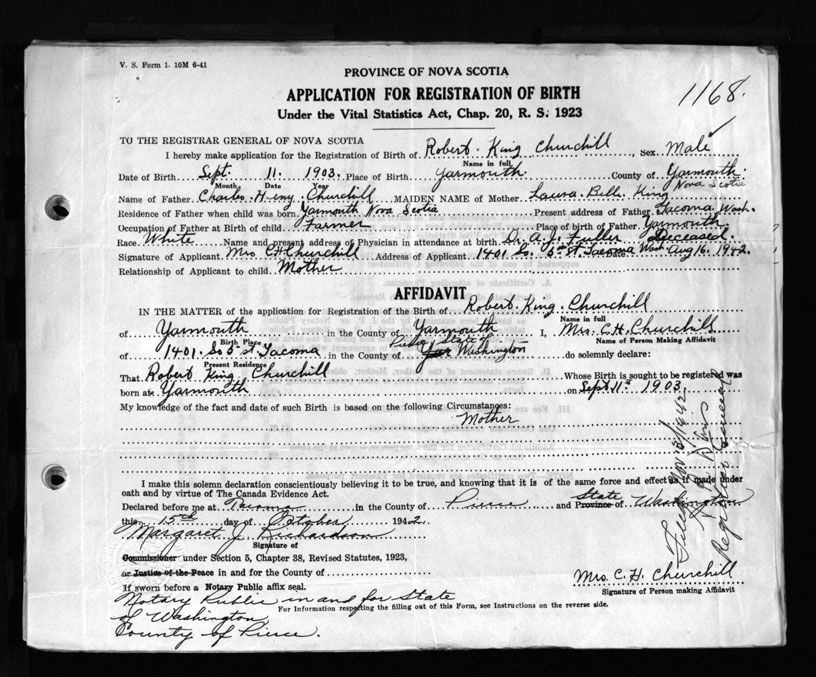 V. S. Form 1. 10M 6-41
PROVINCE OF NOVA SCOTIA
1168.
APPLICATION FOR REGISTRATION OF BIRTH
Under the Vital Statistics Act, Chap. 20, R. S. 1923
TO THE REGISTRAR GENERAL OF NOVA SCOTIA
I hereby make application for the Registration of Birth of Robert King Churchill Sex Male
Name in full
Date of Birth Sept. 11. 1903. Place of Birth Yarmouth County of Yarmouth
Month Date Year Nova Scotia
Name of Father Charles Henry Churchill MAIDEN NAME of Mother Laura Bell King
Residence of Father when child was born Yarmouth Nova Scotia Present address of Father Tacoma Wash.
Occupation of Father at Birth of child Farmer Place of birth of Father Yarmouth
Race White Name and present address of Physician in attendance at birth Dr. A. J. Fuller Deceased.
Signature of Applicant Mrs C H Churchill Address of Applicant 1401 So. 5th St. Tacoma Wash Aug 16. 1942.
Relationship of Applicant to child Mother
AFFIDAVIT
IN THE MATTER of the application for Registration of the Birth of Robert King Churchill
Name in full
of Yarmouth in the County of Yarmouth I, Mrs. C. H. Churchill
Birth Place State of Name of Person Making Affidavit
of 1401 So 5th St Tacoma in the County of Washington do solemnly declare:
Present Residence
That Robert King Churchill Whose Birth is sought to be registered was
born at Yarmouth on Sept 11th 1903.
My knowledge of the fact and date of such Birth is based on the following Circumstances:
Mother
I make this solemn declaration conscientiously believing it to be true, and knowing that it is of the same force and effect as if made under
oath and by virtue of The Canada Evidence Act.
Declared before me at Tacoma in the County of Pierce and State Province of Washington
this 15th day of October 1942.
Margaret J. Richardson
Signature of
Commissioner under Section 5, Chapter 38, Revised Statutes, 1923,
or Justice of the Peace in and for the County of
If sworn before a Notary Public affix seal.
Notary Public in and for State
of Washington
County of Pierce.
For Information respecting the filling out of this Form, see Instructions on the reverse side.
Mrs. C. H. Churchill
Signature of Person making Affidavit
Registrar General